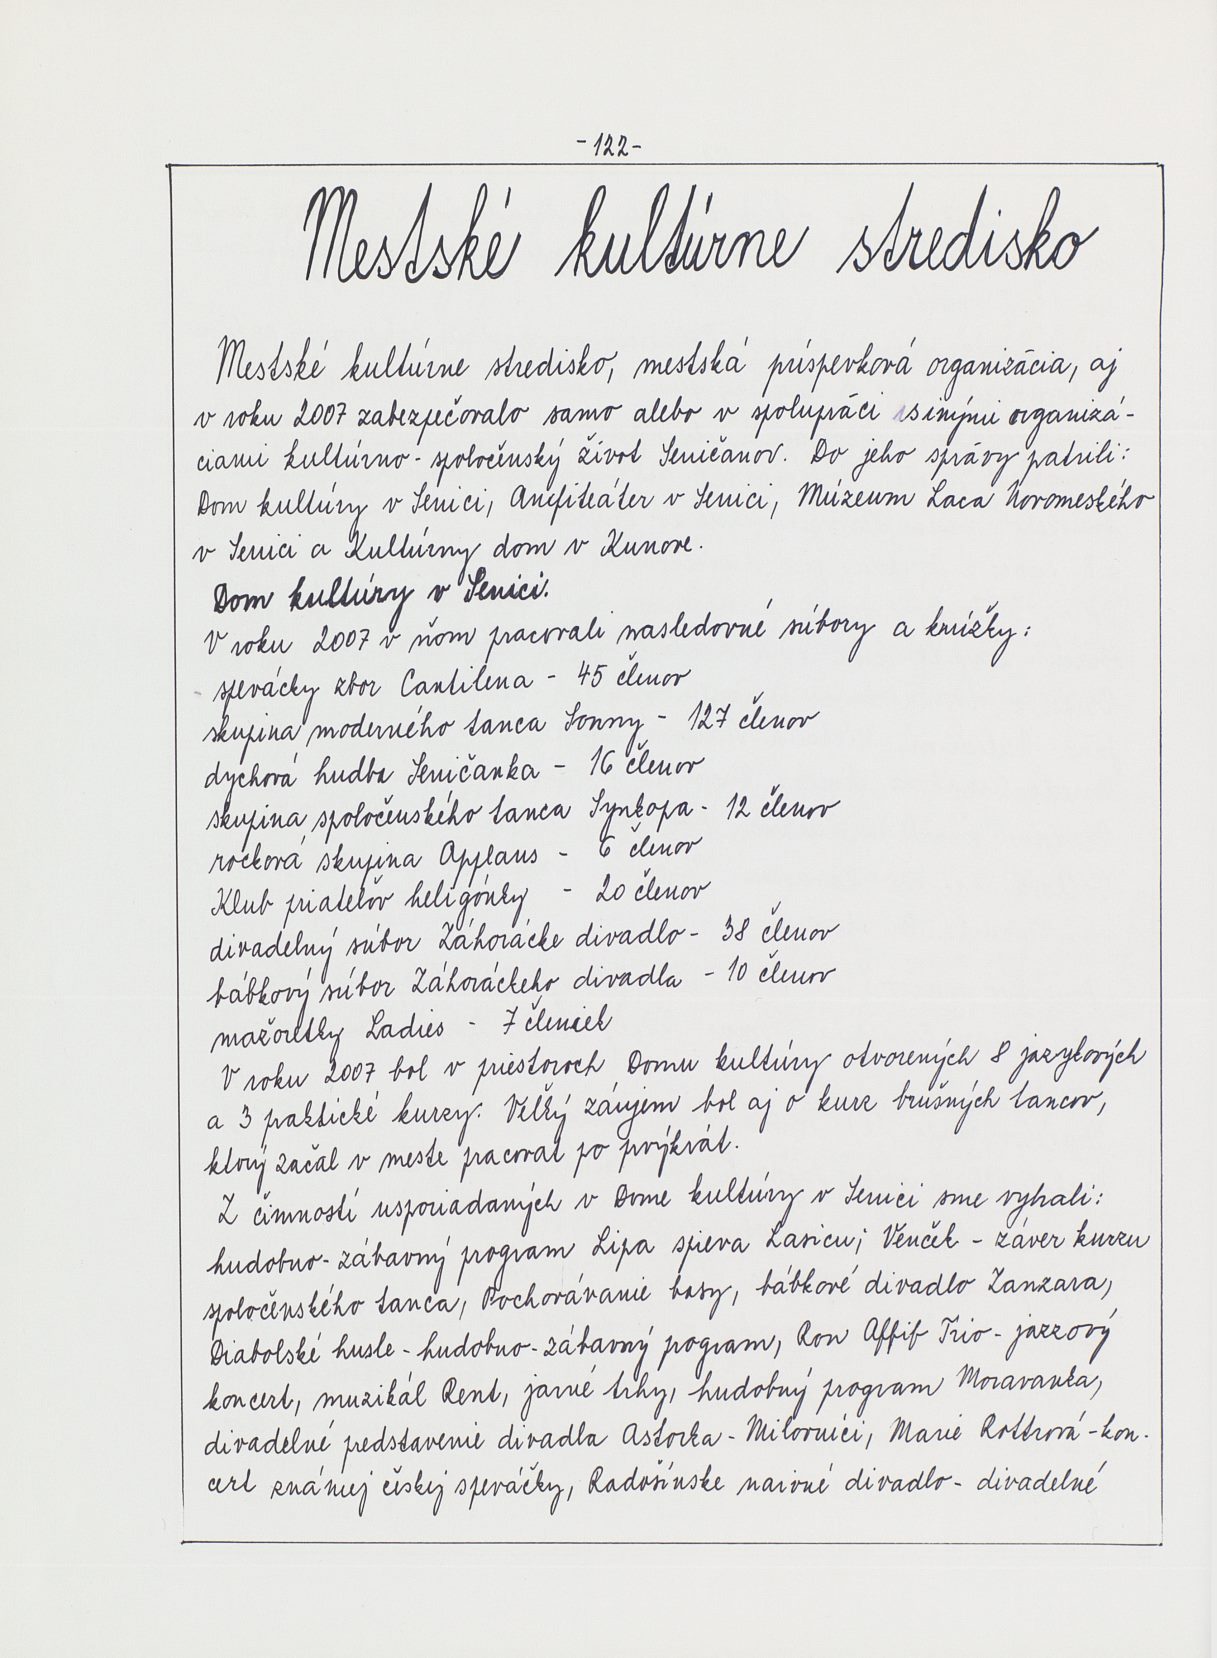 -122-
Mestské kultúrne stredisko
Mestské kultúrne stredisko, mestská príspevková organizácia, aj
v roku 2007 zabezpečovalo samo alebo v spolupráci s inými organizá-
ciami kultúrno-spoločenský život Seničanov. Do jeho správy patrili:
Dom kultúry v Senici, Amfiteáter v Senici, Múzeum Laca Novomeského
v Senici a Kultúrny dom v Kunove.
Dom kultúry v Senici.
V roku 2007 v ňom pracovali nasledovné súbory a krúžky:
spevácky zbor Cantilena - 45 členov
skupina moderného tanca Sonny - 127 členov
dychová hudba Seničanka - 16 členov
skupina spoločenského tanca Synkopa - 12 členov
rocková skupina Applaus - 6 členov
Klub priateľov heligónky - 20 členov
divadelný súbor Záhorácke divadlo - 38 členov
bábkový súbor Záhoráckeho divadla - 10 členov
mažoretky Ladies - 7 členiek
V roku 2007 bol v priestoroch Domu kultúry otvorených 8 jazykových
a 3 praktické kurzy. Veľký záujem bol aj o kurz brušných tancov,
ktorý začal v meste pracovať po prvýkrát.
Z činností usporiadaných v Dome kultúry v Senici sme vybrali:
hudobno-zábavný program Lipa spieva Lasicu; Venček - záver kurzu
spoločenského tanca, Pochovávanie basy, bábkové divadlo Zanzara,
Diabolské husle - hudobno-zábavný pogram, Ron Affif Trio - jazzový
koncert, muzikál Rent, jarné trhy, hudobný program Moravanka,
divadelné pedstavenie divadla Astorka - Milovníci, Marie Rottrová - kon-
cert známej českej speváčky, Radošinske naivné divadlo - divadelné